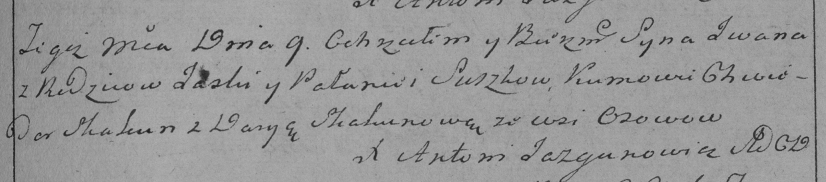 Tegoż Mca Dnia 9. Ochrzciłim y Birzm. Syna Jwana
z Rodzicow Jaśki y Pałanei Suszkow, Kumowie Chwie-
dor Skakun z Daryją Skakunowną ze wsi Osowow
X Antoni Jazgunowicz